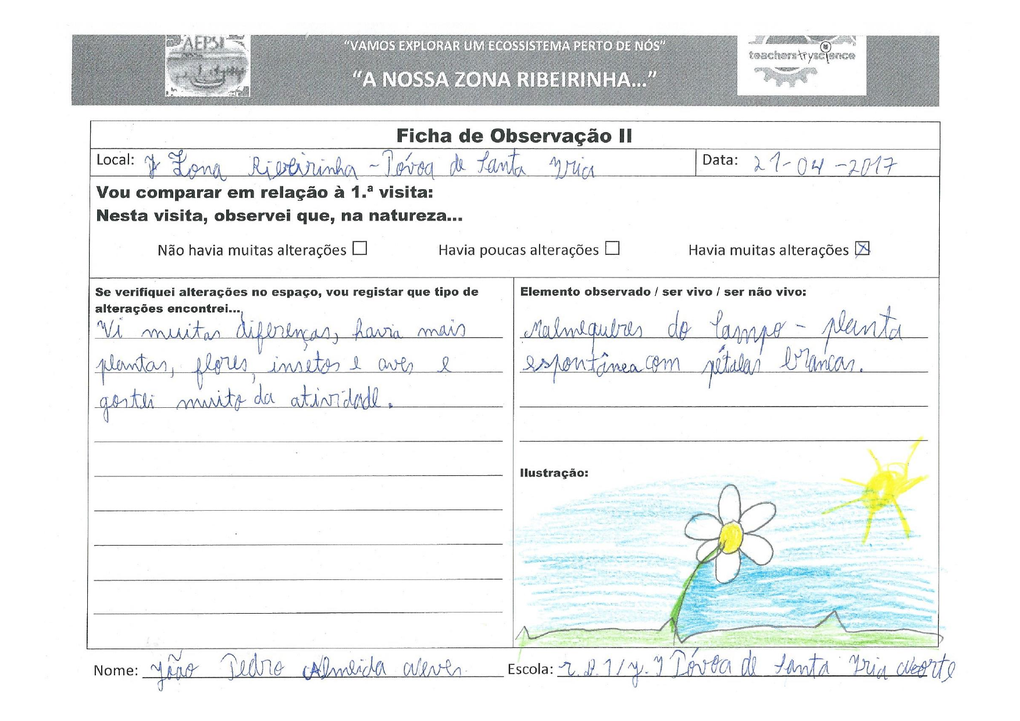 AEPSI
"VAMOS EXPLORAR UM ECOSSISTEMA PERTO DE NÓS"
"A NOSSA ZONA RIBEIRINHA..."
teachers try science
Ficha de Observação II
Local: Zona Ribeirinha - Póvoa de Santa Iria
Data: 21-04-2017
Vou comparar em relação à 1.ª visita:
Nesta visita, observei que, na natureza...
Não havia muitas alterações ☐ Havia poucas alterações ☐ Havia muitas alterações ☒
Se verifiquei alterações no espaço, vou registar que tipo de
alterações encontrei...
Vi muitas diferenças, havia mais
plantas, flores, insetos e aves e
gostei muito da atividade.
Elemento observado / ser vivo / ser não vivo:
Malmequeres do Campo - planta
espontânea com pétalas brancas.
Ilustração:
Nome: João Pedro Almeida Neves
Escola: Póvoa de Santa Iria Norte